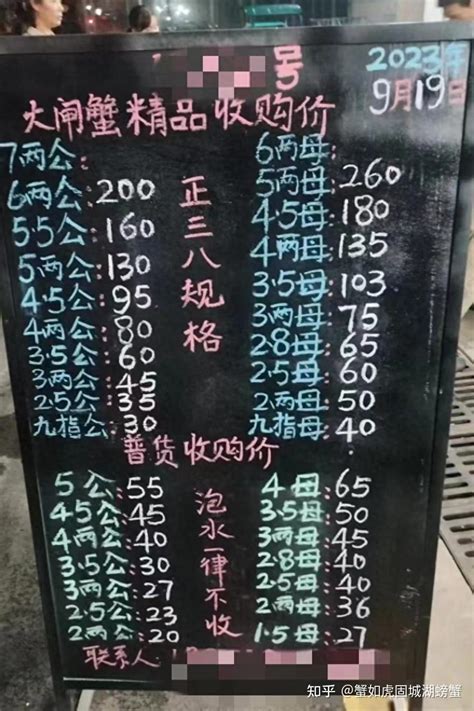 号
2023年
9月19日
大闸蟹精品收购价
7两公:
6两公:200
5.5公:160
5两公:130
4.5公:95
4两公:80
3.5公:60
3两公:45
2.5公:35
九指公:30
正三八规格
6两母:
5两母:260
4.5母:180
4两母:135
3.5母:103
3两母:75
2.8母:65
2.5母:60
2两母:50
九指母:40
普货收购价
5公:55
4.5公:45
4两公:40
3.5公:30
3两公:27
2.5公:23
2两公:20
泡水一律不收
4母:65
3.5母:50
3两母:45
2.8母:40
2.5母:40
2两母:36
1.5母:27
联系人
知乎 @蟹如虎固城湖螃蟹